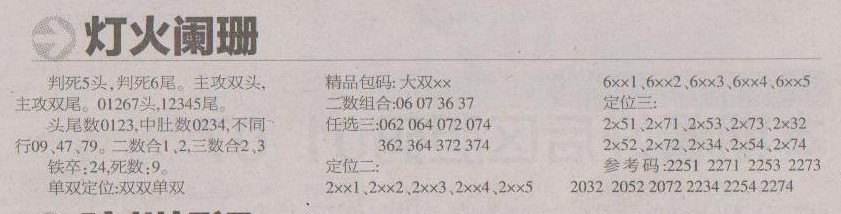 灯火阑珊
判死5头,判死6尾。主攻双头,
主攻双尾。01267头,12345尾。
头尾数0123,中肚数0234,不同
行09、47、79。二数合1、2,三数合2、3
铁卒:24,死数:9。
单双定位:双双单双
精品包码:大双××
二数组合:06 07 36 37
任选三:062 064 072 074
362 364 372 374
定位二:
2××1、2××2、2××3、2××4、2××5
6××1、6××2、6××3、6××4、6××5
定位三:
2×51、2×71、2×53、2×73、2×32
2×52、2×72、2×34、2×54、2×74
参考码:2251 2271 2253 2273
2032 2052 2072 2234 2254 2274